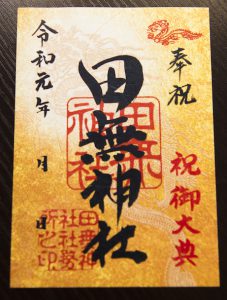 奉祝
祝御大典
田無神社
田無神社
令和元年 月 日
田無神
社社務
所之印